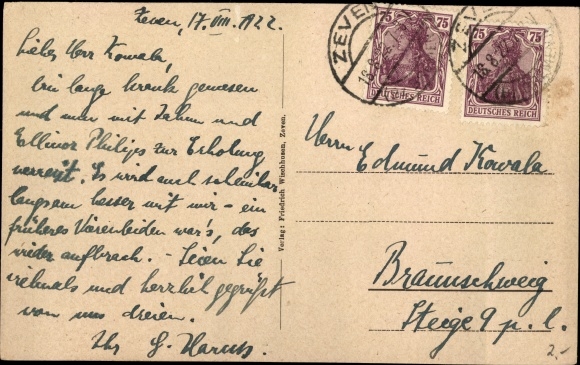 Zeven, 17. VIII. 1922.
Lieber Herr Kowala,
bin lange krank gewesen
und nun mit
Ellinor Philips zur Erholung
verreist. Es wird auch scheinbar
langsam besser mit mir – ein
früheres war's, das
wieder aufbrach. – Seien Sie
vielmals und herzlich gegrüßt
von uns dreien.
Ihr
ZEVEN
75 75
DEUTSCHES REICH
75 75
DEUTSCHES REICH
Verlag: Friedrich Wiechhusen, Zeven.
Herrn Edmund Kowala
Braunschweig
Steige 9 p. l.
2,-